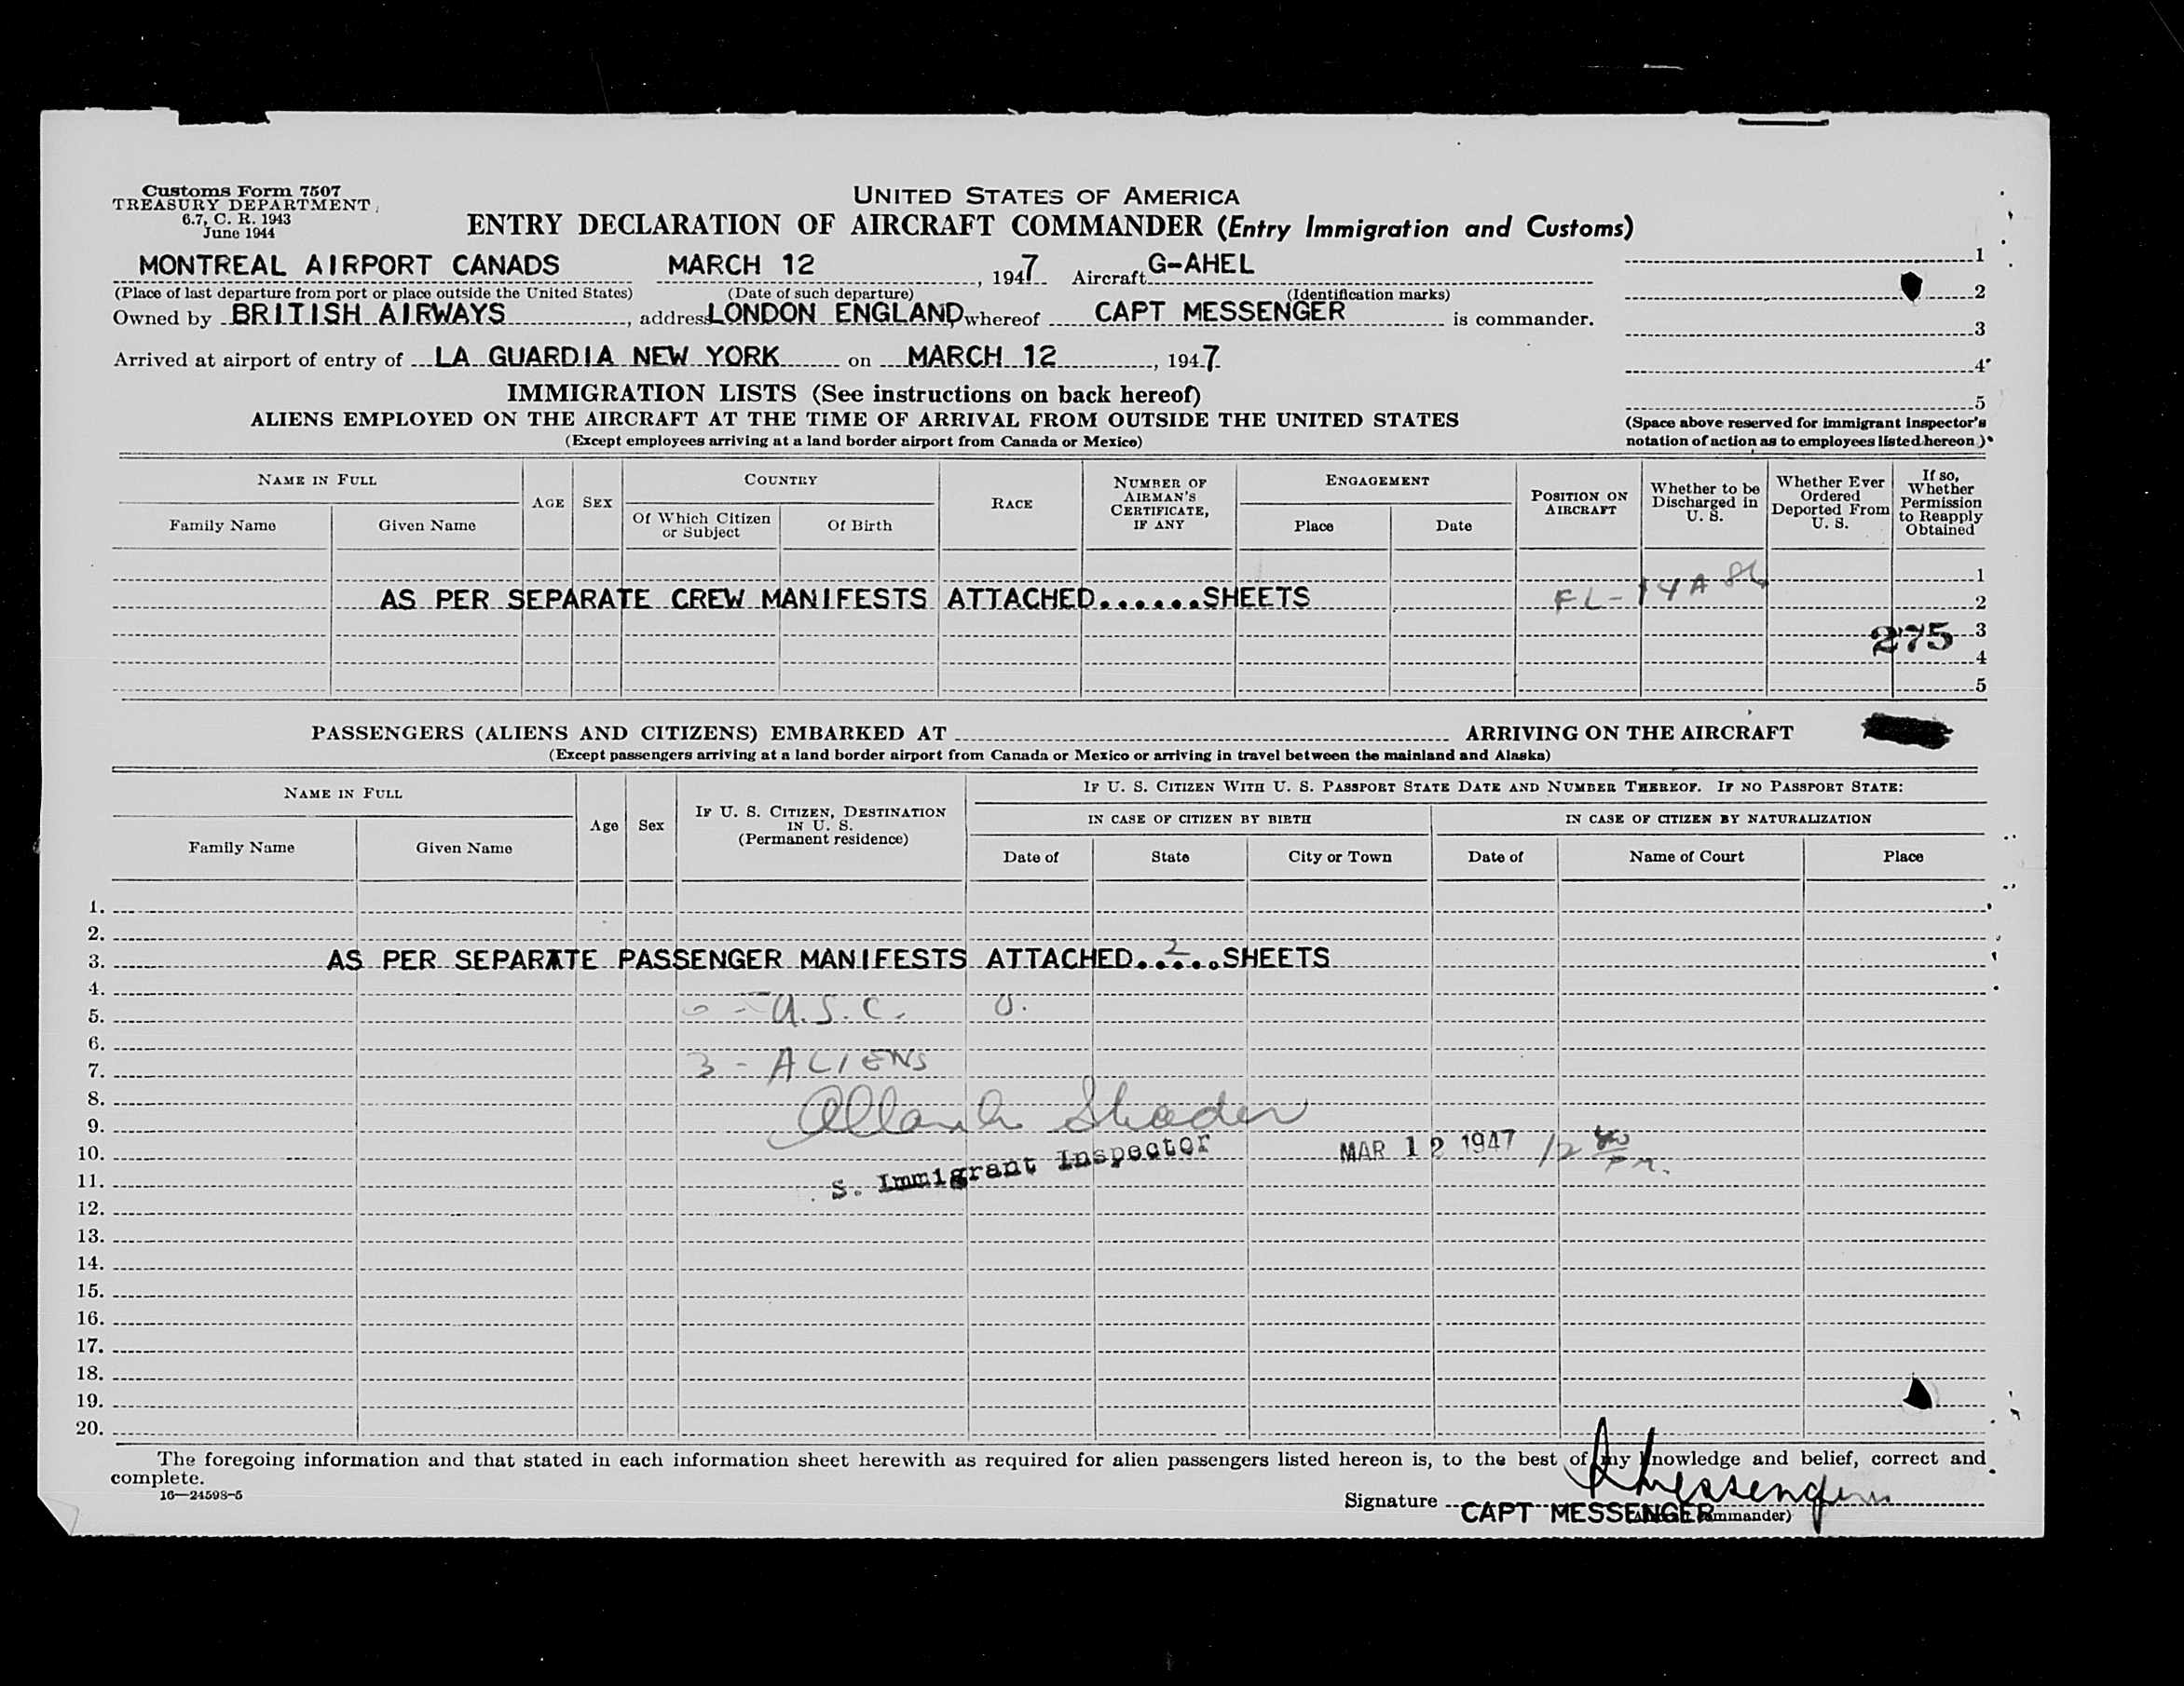 Customs Form 7507
TREASURY DEPARTMENT
6.7, C. R. 1943
June 1944
UNITED STATES OF AMERICA
ENTRY DECLARATION OF AIRCRAFT COMMANDER (Entry Immigration and Customs)
MONTREAL AIRPORT CANADS MARCH 12, 1947 Aircraft G-AHEL
(Place of last departure from port or place outside the United States) (Date of such departure) (Identification marks)
Owned by BRITISH AIRWAYS, address LONDON ENGLAND whereof CAPT MESSENGER is commander.
Arrived at airport of entry of LA GUARDIA NEW YORK on MARCH 12, 1947
1
2
3
4
5
(Space above reserved for immigrant inspector's
notation of action as to employees listed hereon)
IMMIGRATION LISTS (See instructions on back hereof)
ALIENS EMPLOYED ON THE AIRCRAFT AT THE TIME OF ARRIVAL FROM OUTSIDE THE UNITED STATES
(Except employees arriving at a land border airport from Canada or Mexico)
NAME IN FULL
Family Name
Given Name
AGE
SEX
COUNTRY
Of Which Citizen
or Subject
Of Birth
RACE
NUMBER OF
AIRMAN'S
CERTIFICATE,
IF ANY
ENGAGEMENT
Place
Date
POSITION ON
AIRCRAFT
Whether to be
Discharged in
U. S.
Whether Ever
Ordered
Deported From
U. S.
If so,
Whether
Permission
to Reapply
Obtained
1
AS PER SEPARATE CREW MANIFESTS ATTACHED......SHEETS FL-14A 2
275 3
4
5
PASSENGERS (ALIENS AND CITIZENS) EMBARKED AT ARRIVING ON THE AIRCRAFT
(Except passengers arriving at a land border airport from Canada or Mexico or arriving in travel between the mainland and Alaska)
NAME IN FULL
Family Name
Given Name
Age
Sex
IF U. S. CITIZEN, DESTINATION
IN U. S.
(Permanent residence)
IF U. S. CITIZEN WITH U. S. PASSPORT STATE DATE AND NUMBER THEREOF. IF NO PASSPORT STATE:
IN CASE OF CITIZEN BY BIRTH
IN CASE OF CITIZEN BY NATURALIZATION
Date of
State
City or Town
Date of
Name of Court
Place
1.
2.
3. AS PER SEPARATE PASSENGER MANIFESTS ATTACHED..2...SHEETS
4.
5. 0 - U.S.C. 0.
6.
7. 3 - ALIENS
8.
9.
10. MAR 12 1947 12
11. S. Immigrant Inspector
12.
13.
14.
15.
16.
17.
18.
19.
20.
The foregoing information and that stated in each information sheet herewith as required for alien passengers listed hereon is, to the best of my knowledge and belief, correct and
complete.
16—24593-5
Signature Messenger
CAPT MESSENGER